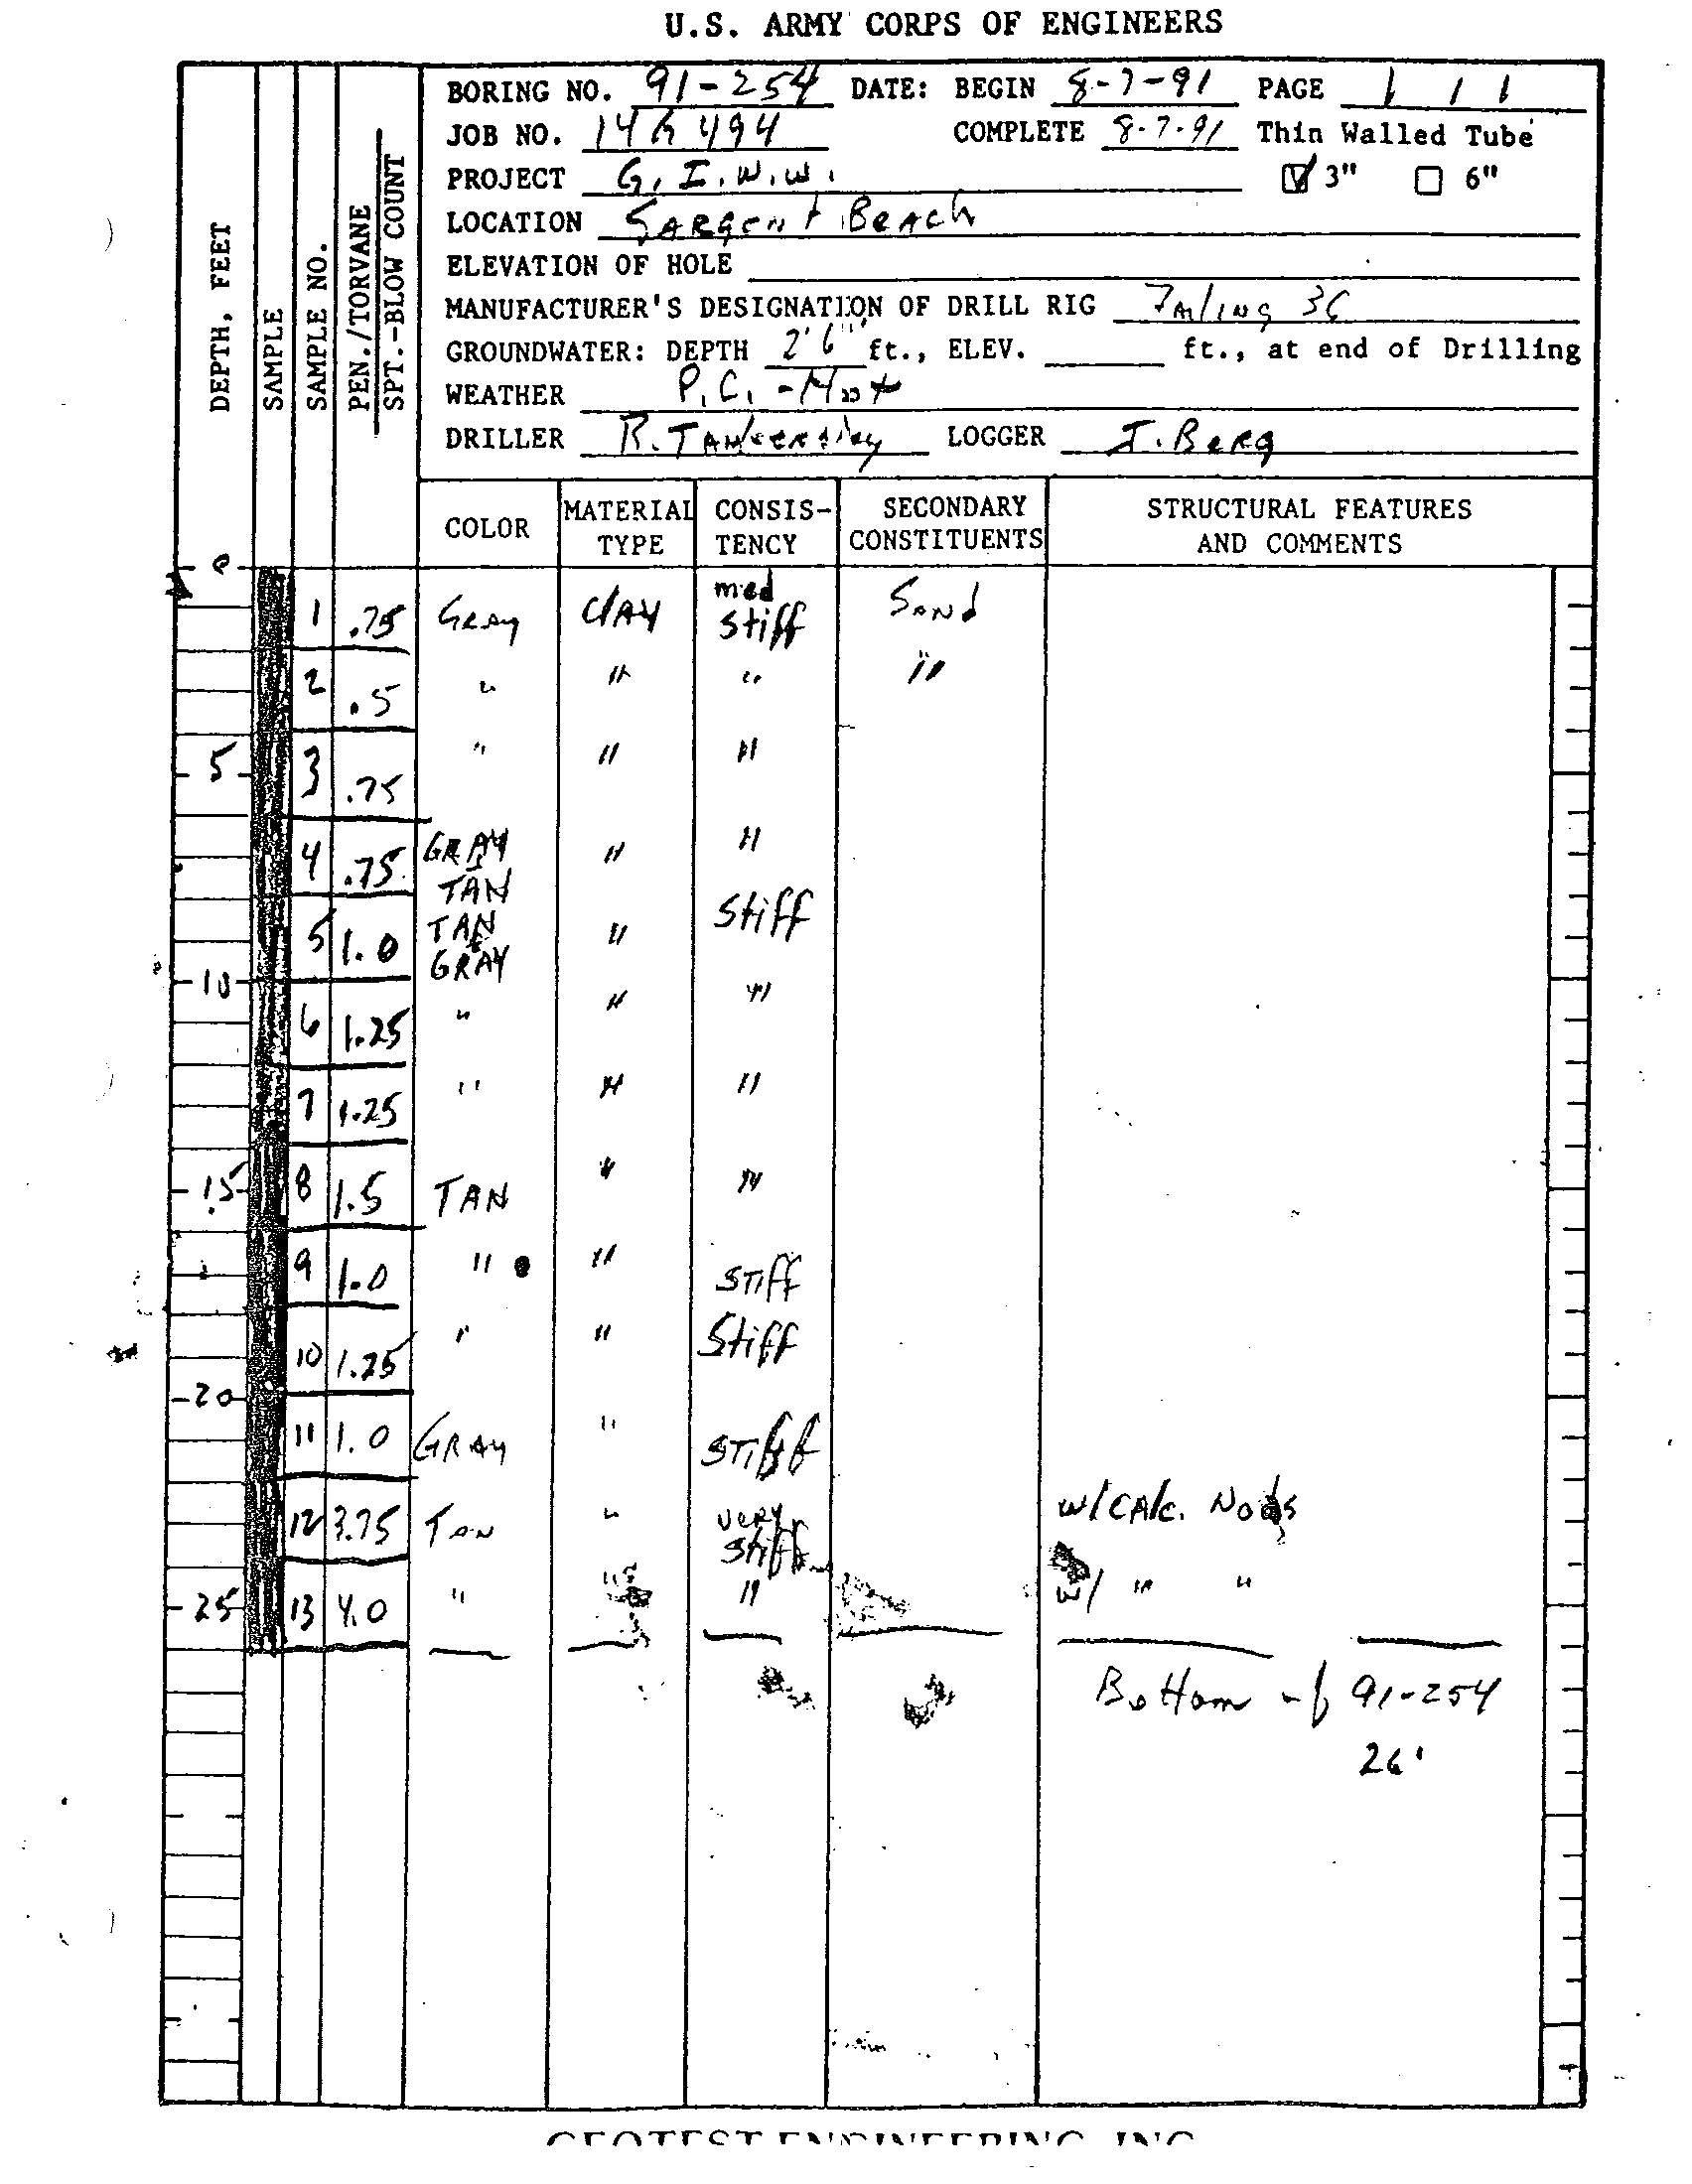 U.S. ARMY CORPS OF ENGINEERS
BORING NO. 91-254 DATE: BEGIN 8-7-91 PAGE 1 / 1
JOB NO. 14G494 COMPLETE 8-7-91 Thin Walled Tube
PROJECT G.I.W.W. 3" 6"
LOCATION SARGENT BEACH
ELEVATION OF HOLE
MANUFACTURER'S DESIGNATION OF DRILL RIG Failing 36
GROUNDWATER: DEPTH 2'6" ft., ELEV. ft., at end of Drilling
WEATHER P.C. - Hot
DRILLER R. LOGGER J. Berg
DEPTH, FEET
SAMPLE
SAMPLE NO.
PEN./TORVANE
SPT.-BLOW COUNT
COLOR MATERIAL TYPE CONSIS-TENCY SECONDARY CONSTITUENTS STRUCTURAL FEATURES AND COMMENTS
0
1 .75 Gray CLAY med stiff Sand
2 .5 " " " "
5 3 .75 " " "
4 .75 GRAY & TAN " "
5 1.0 TAN & GRAY " Stiff
10
6 1.25 " " "
7 1.25 " " "
15 8 1.5 TAN " "
9 1.0 " " STIFF
10 1.25 " " Stiff
20
11 1.0 GRAY " STIFF
12 3.75 TAN " very stiff w/CAlc. Nods
25 13 4.0 " " " w/ " "
Bottom of 91-254
26'
GEOTEST ENGINEERING, INC.